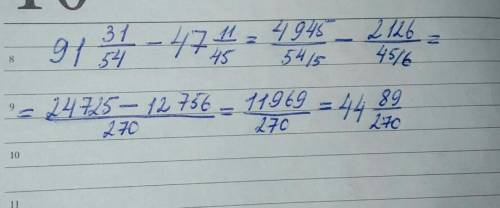 8 91 31/54 - 47 11/45 = 4945/54/5 - 2126/45/6 =
9 = 24725 - 12756/270 = 11969/270 = 44 89/270
10
11